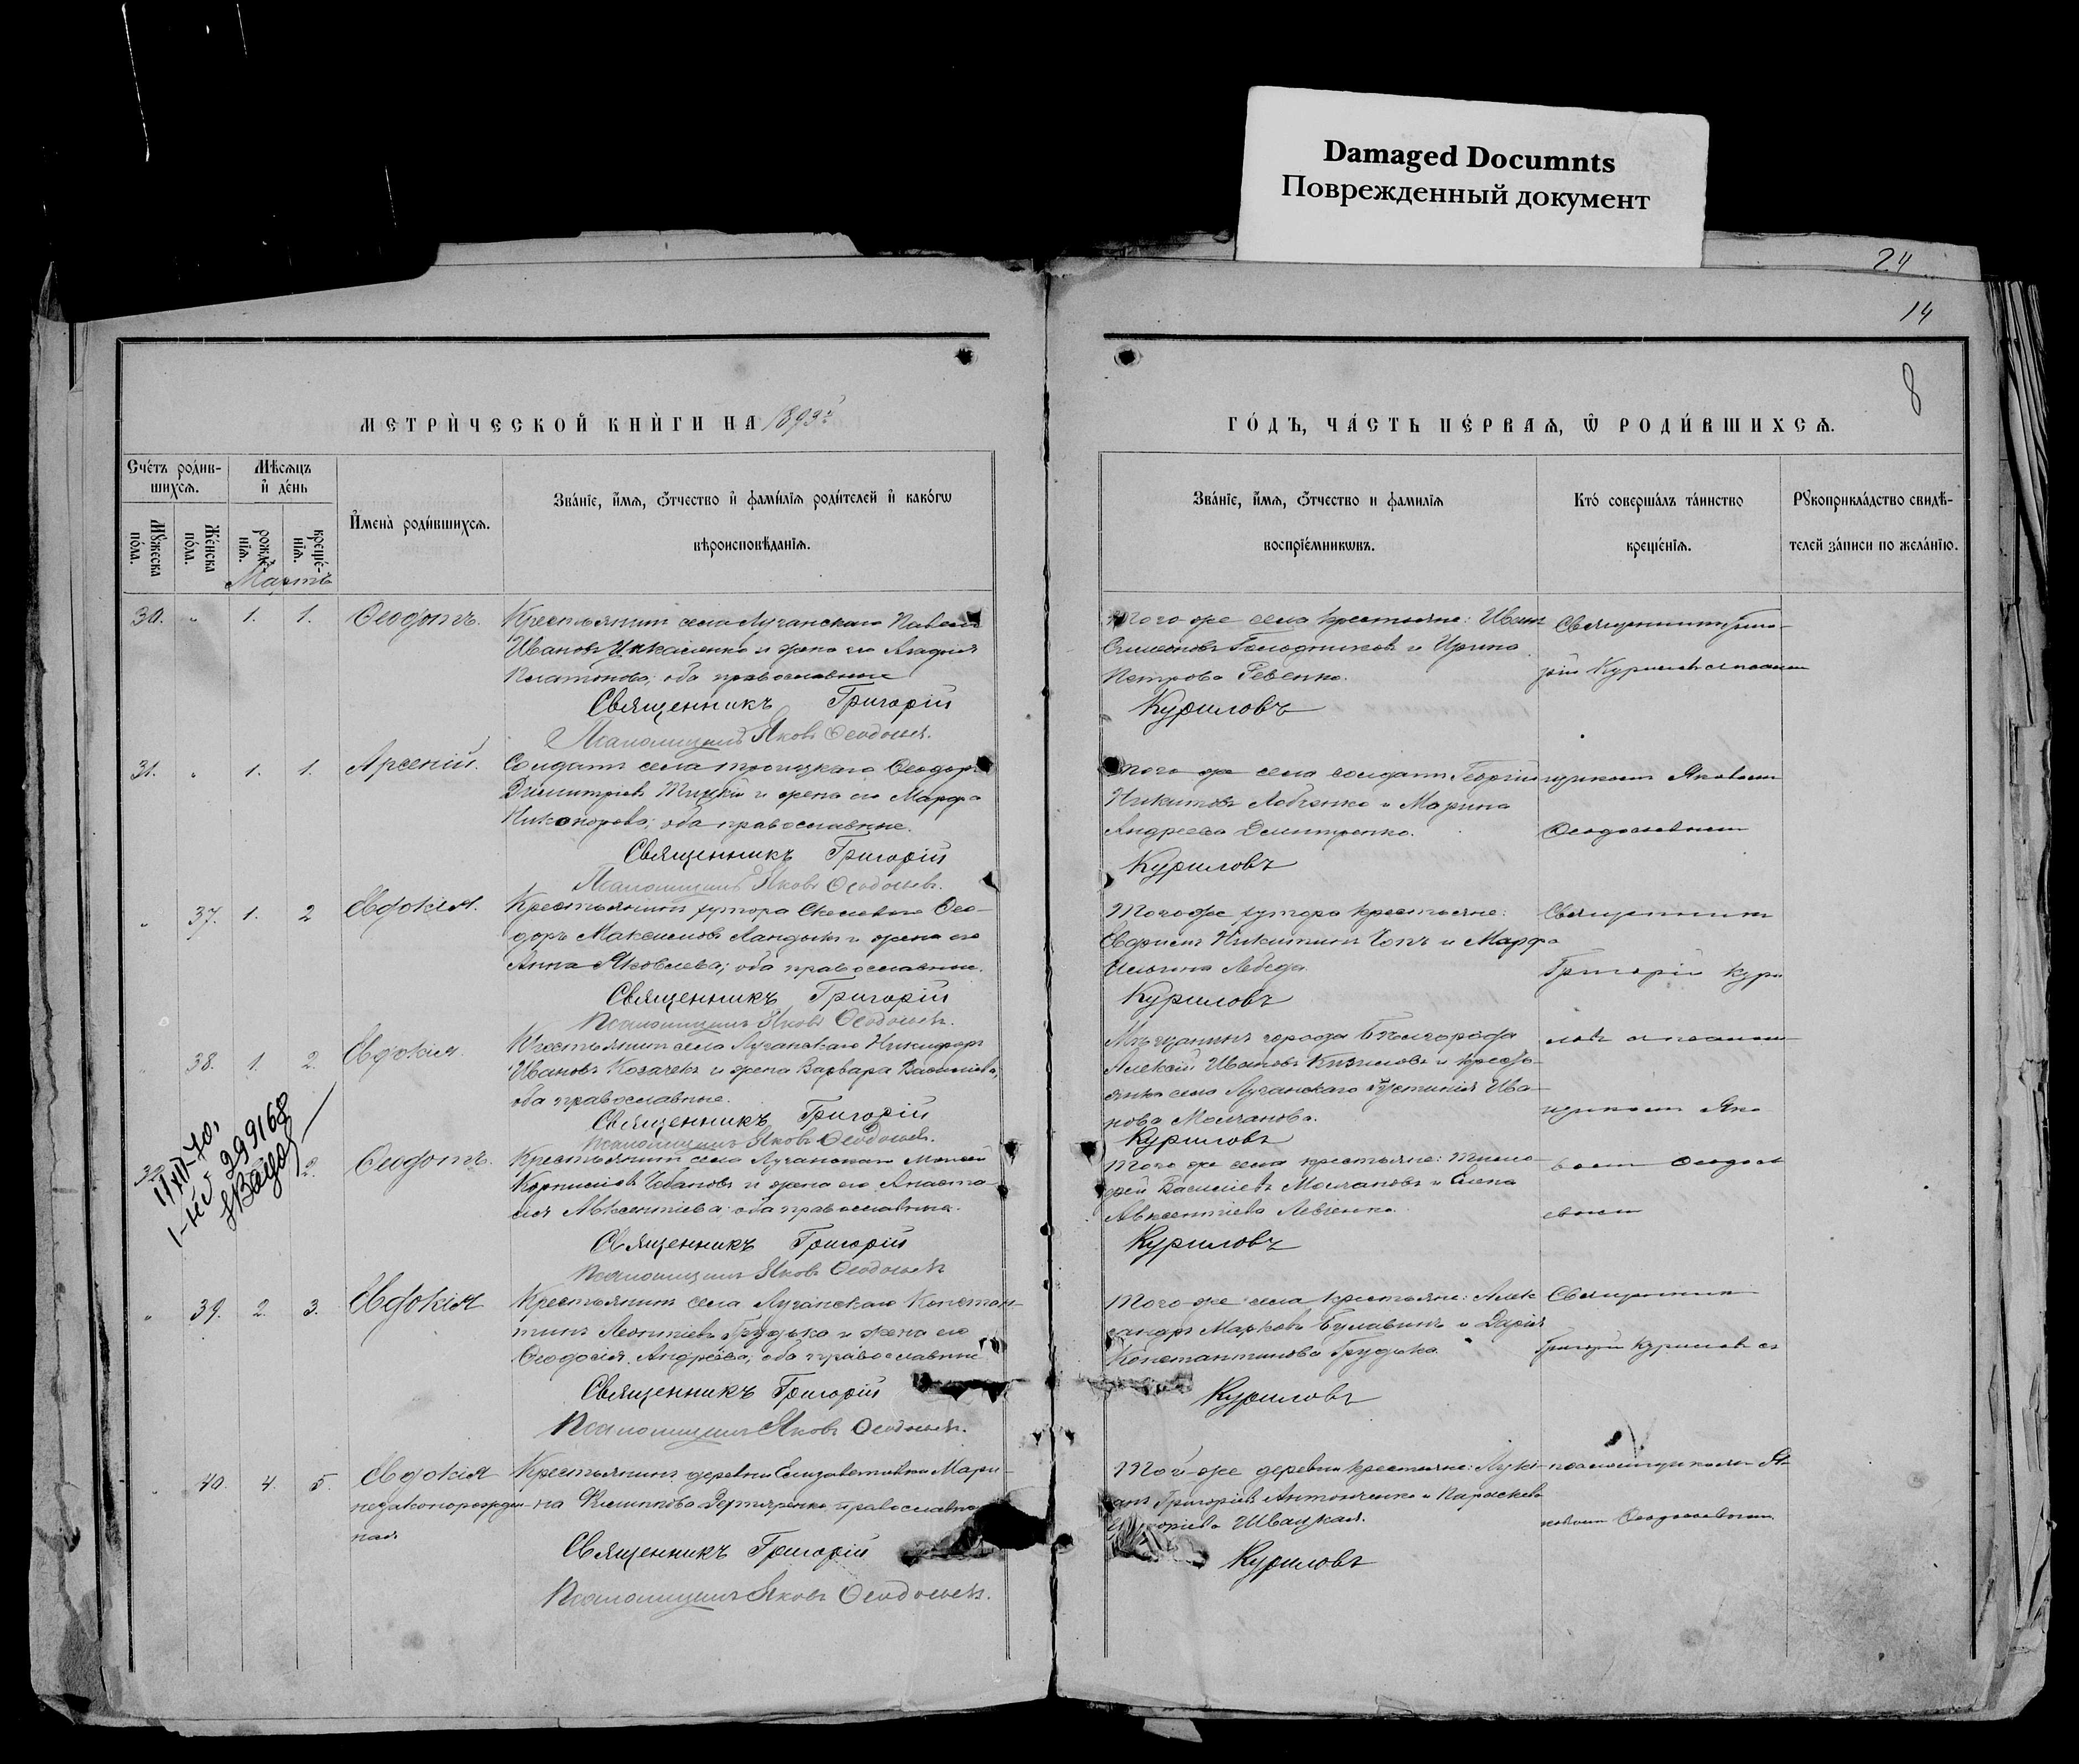 Damaged Documnts
Поврежденный документ
24
14
8
МЕТРИ́ЧЕСКОЙ КНИ́ГИ НА 1893й
ГО́ДЪ, ЧА́СТЬ ПЕ́РВАѦ, Ѿ РОДИ́ВШИХСѦ.
Сче́тъ роди́в-
шихсѧ.
Мѣ́сѧцъ
и҆ де́нь
Мꙋ́жеска по́ла.
Же́нска по́ла.
рожде́-
нїѧ.
креще́-
нїѧ.
И҆мена̀ роди́вшихсѧ.
Зва́нїе, и҆́мѧ, ѻ҆́тчество и҆ фами́лїѧ роди́телей и҆ како́гѡ
вѣроисповѣ́данїѧ.
Зва́нїе, и҆́мѧ, ѻ҆́тчество и фамилїѧ
воспрїе́мникѡвъ.
Кто̀ соверша́лъ та́инство
креще́нїѧ.
Рꙋкоприкла́дство свидѣ́-
телей за́писи по жела́нїю.
Мартъ
30. " 1. 1. Ѳеодотъ.
Крестьянинъ села Луганскаго Павелъ
Ивановъ и жена его
Платонова; оба православные
Священникъ Григорій
Псаломщикъ Яковъ Ѳеодосьев.
Того же села крестьяне: Иванъ
и Ирина
Петрова Ревенко.
Куриловъ
Священникъ Григо-
рій Куриловъ съ псалом
31. " 1. 1. Арсеній.
Солдатъ села Троицкаго Ѳеодоръ
Димитріевъ и жена его Марфа
Никонорова; оба православные.
Священникъ Григорій
Псаломщикъ Яковъ Ѳеодосьев.
Того же села солдатъ Георгій
Никитовъ Лобченко и Марина
Андреева Дмитренко.
Куриловъ
щикомъ Яковомъ
Ѳеодосьевымъ
" 37. 1. 2 Евдокія.
Крестьянинъ хутора Ѳео-
доръ Максимовъ и жена его
Анна Яковлева; оба православные.
Священникъ Григорій
Псаломщикъ Яковъ Ѳеодосьев.
Того же хутора крестьяне:
Никитинъ Чопъ и Марфа
Лебеда
Куриловъ
Священникъ
Григорій Кури
" 38. 1. 2. Евдокія.
Крестьянинъ села Луганскаго Никифоръ
Ивановъ Козачекъ и жена Варвара Васильева,
оба православные.
Священникъ Григорій
Псаломщикъ Яковъ Ѳеодосьев.
Мѣщанинъ города Бѣлгорода
Алексѣй Ивановъ и кресть-
янка села Луганскаго Іустинія Ива-
нова Молчанова.
Куриловъ
ловъ съ псалом-
щикомъ Яко
11/XII-70,
299168
2. Ѳеодотъ.
Крестьянинъ села Луганскаго
Корниліевъ и жена его Анаста-
сія Авксентіева; оба православные.
Священникъ Григорій
Псаломщикъ Яковъ Ѳеодосьев
Того же села крестьяне: Тимо-
фей Васильевъ Молчановъ и Елена
Авксентіева Левченко.
Куриловъ
вомъ Ѳеодось
евымъ
" 39. 2. 3. Евдокія
Крестьянинъ села Луганскаго Констан-
тинъ Леонтіевъ Грудько и жена его
Ѳеодосія Андреева, оба православные
Священникъ Григорій
Псаломщикъ Яковъ Ѳеодосьев.
Того же села крестьяне: Алек
сандръ Марковъ Булавинъ и Дарія
Константинова Грудько.
Куриловъ
Священникъ
Григорій Куриловъ съ
" 40. 4. 5. Евдокія
незаконорожден-
ная
Крестьянинъ деревни Елизаветовки Мари-
на Филиппова православная
Священникъ Григорій
Псаломщикъ Яковъ Ѳеодосьев.
Той же деревни крестьяне: Луки-
анъ Григоріевъ Антонченко и Параскева
Швацкая.
Куриловъ
псаломщикомъ Я-
ковомъ Ѳеодосьевымъ.